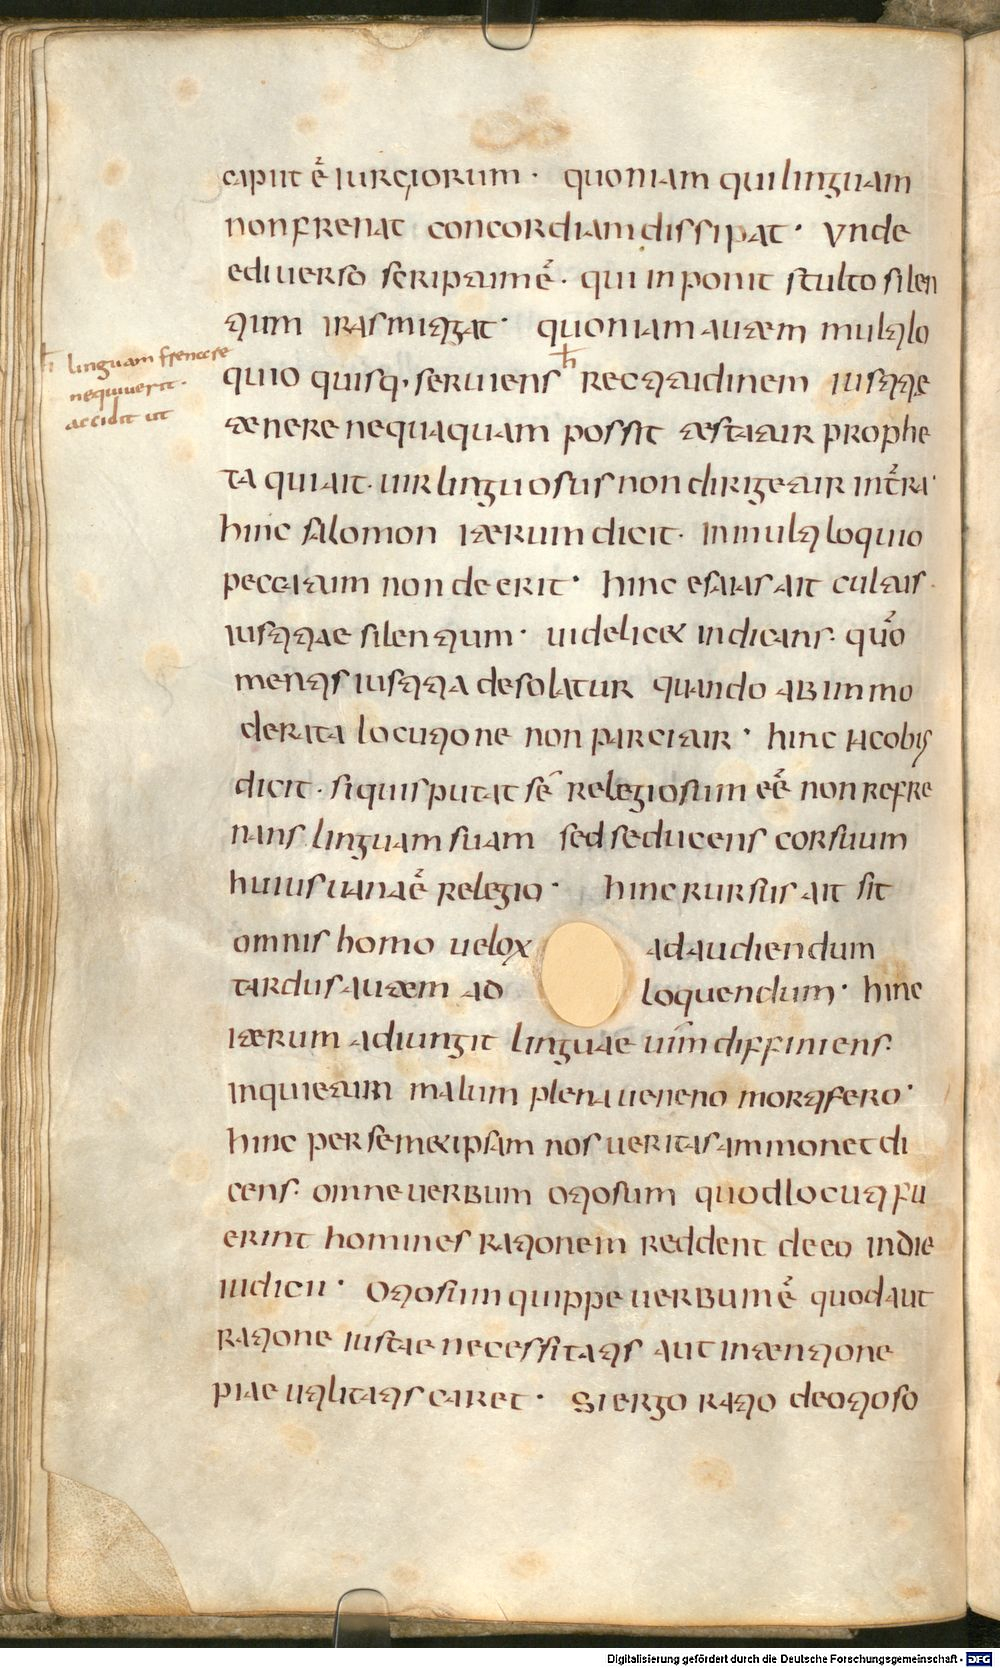 caput ē iurgiorum · quoniam qui linguam
non frenat concordiam dissipat · unde
ediuerso scriptum ē · qui inponit stulto silen
tium iras mitigat · quoniam autem multilo
quio quisq· seruiens ħ rectitudinem iustitiae
ħ linguam frenare
nequiuerit ·
accidit ut
tenere nequaquam possit testatur prophe
ta qui ait · uir linguosus non dirigetur in t̄ra ·
hinc salomon iterum dicit · In multiloquio
peccatum non deerit · hinc esaias ait cultus ·
iustitiae silentium · uidelicet indicans · quō
mentis iustitia desolatur quando ab immo
derata locutione non parcitur · hinc iacobus
dicit · si quis putat sē relegiosum eē non refre
nans linguam suam sed seducens cor suum
huius uana ē relegio · hinc rursus ait sit
omnis homo uelox ad audiendum
tardus autem ad loquendum · hinc
iterum adiungit linguae uim̄ diffiniens ·
inquietum malum plena ueneno mortifero ·
hinc per semetipsam nos ueritas ammonet di
cens · omne uerbum otiosum quod locuti fu
erint homines rationem reddent de eo in die
iudicii · Otiosum quippe uerbum ē quod aut
ratione iustae necessitatis aut intentione
piae utilitatis caret · Si ergo ratio de otioso
Digitalisierung gefördert durch die Deutsche Forschungsgemeinschaft - DFG